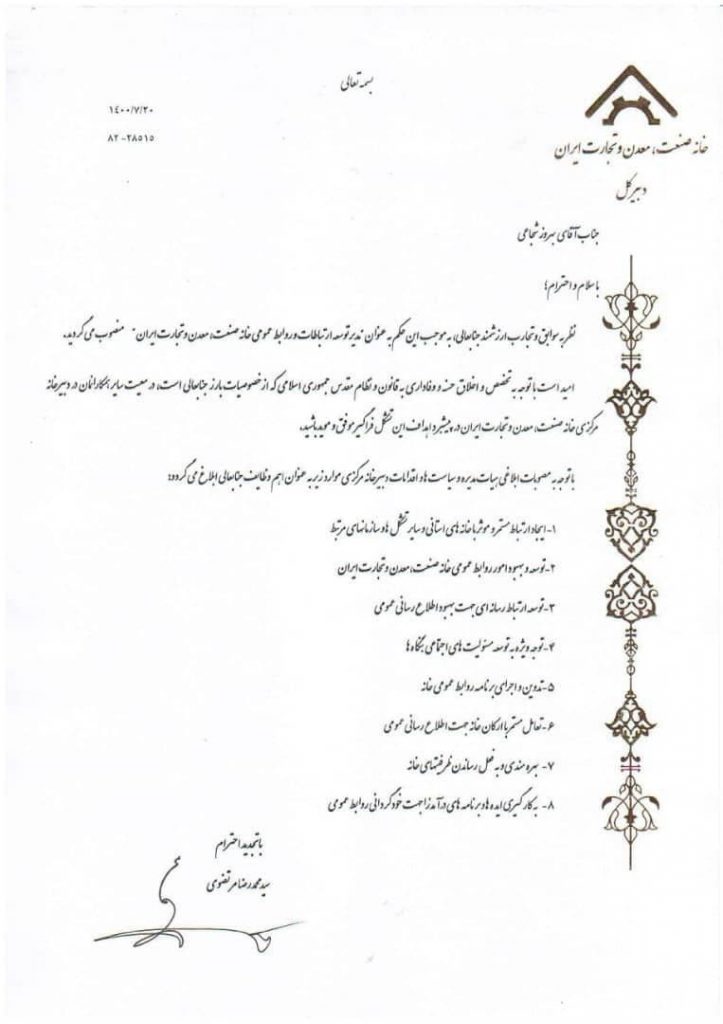 بسمه تعالی
۱۴۰۰/۷/۲۰
۸۲-۲۸۵۱۵
خانه صنعت، معدن و تجارت ایران
دبیرکل
جناب آقای بهروز شجاعی
با سلام و احترام؛
نظر به سوابق و تجارب ارزشمند جنابعالی، به موجب این حکم به عنوان "مدیر توسعه ارتباطات و روابط عمومی خانه صنعت، معدن و تجارت ایران" منصوب می گردید.
امید است با توجه به تخصص و اخلاق حسنه و وفاداری به قانون و نظام مقدس جمهوری اسلامی که از خصوصیات بارز جنابعالی است، در معیت سایر همکارانمان در دبیرخانه
مرکزی خانه صنعت، معدن و تجارت ایران در پیشبرد اهداف این تشکل فراگیر موفق و موید باشید.
با توجه به مصوبات ابلاغی هیات مدیره و سیاست ها و اقدامات دبیرخانه مرکزی موارد زیر به عنوان اهم وظایف جنابعالی ابلاغ می گردد:
۱- ایجاد ارتباط مستمر و موثر با خانه های استانی و سایر تشکل ها و سازمانهای مرتبط
۲- توسعه و بهبود امور روابط عمومی خانه صنعت، معدن و تجارت ایران
۳- توسعه ارتباط رسانه ای جهت بهبود اطلاع رسانی عمومی
۴- توجه ویژه به توسعه مسئولیت های اجتماعی بنگاه ها
۵- تدوین و اجرای برنامه روابط عمومی خانه
۶- تعامل مستمر با ارکان خانه جهت اطلاع رسانی عمومی
۷- بهره مندی و به فعل رساندن ظرفیتهای خانه
۸- به کارگیری ایده ها و برنامه های درآمدزا جهت خودگردانی روابط عمومی
با تجدید احترام
سید محمدرضا مرتضوی